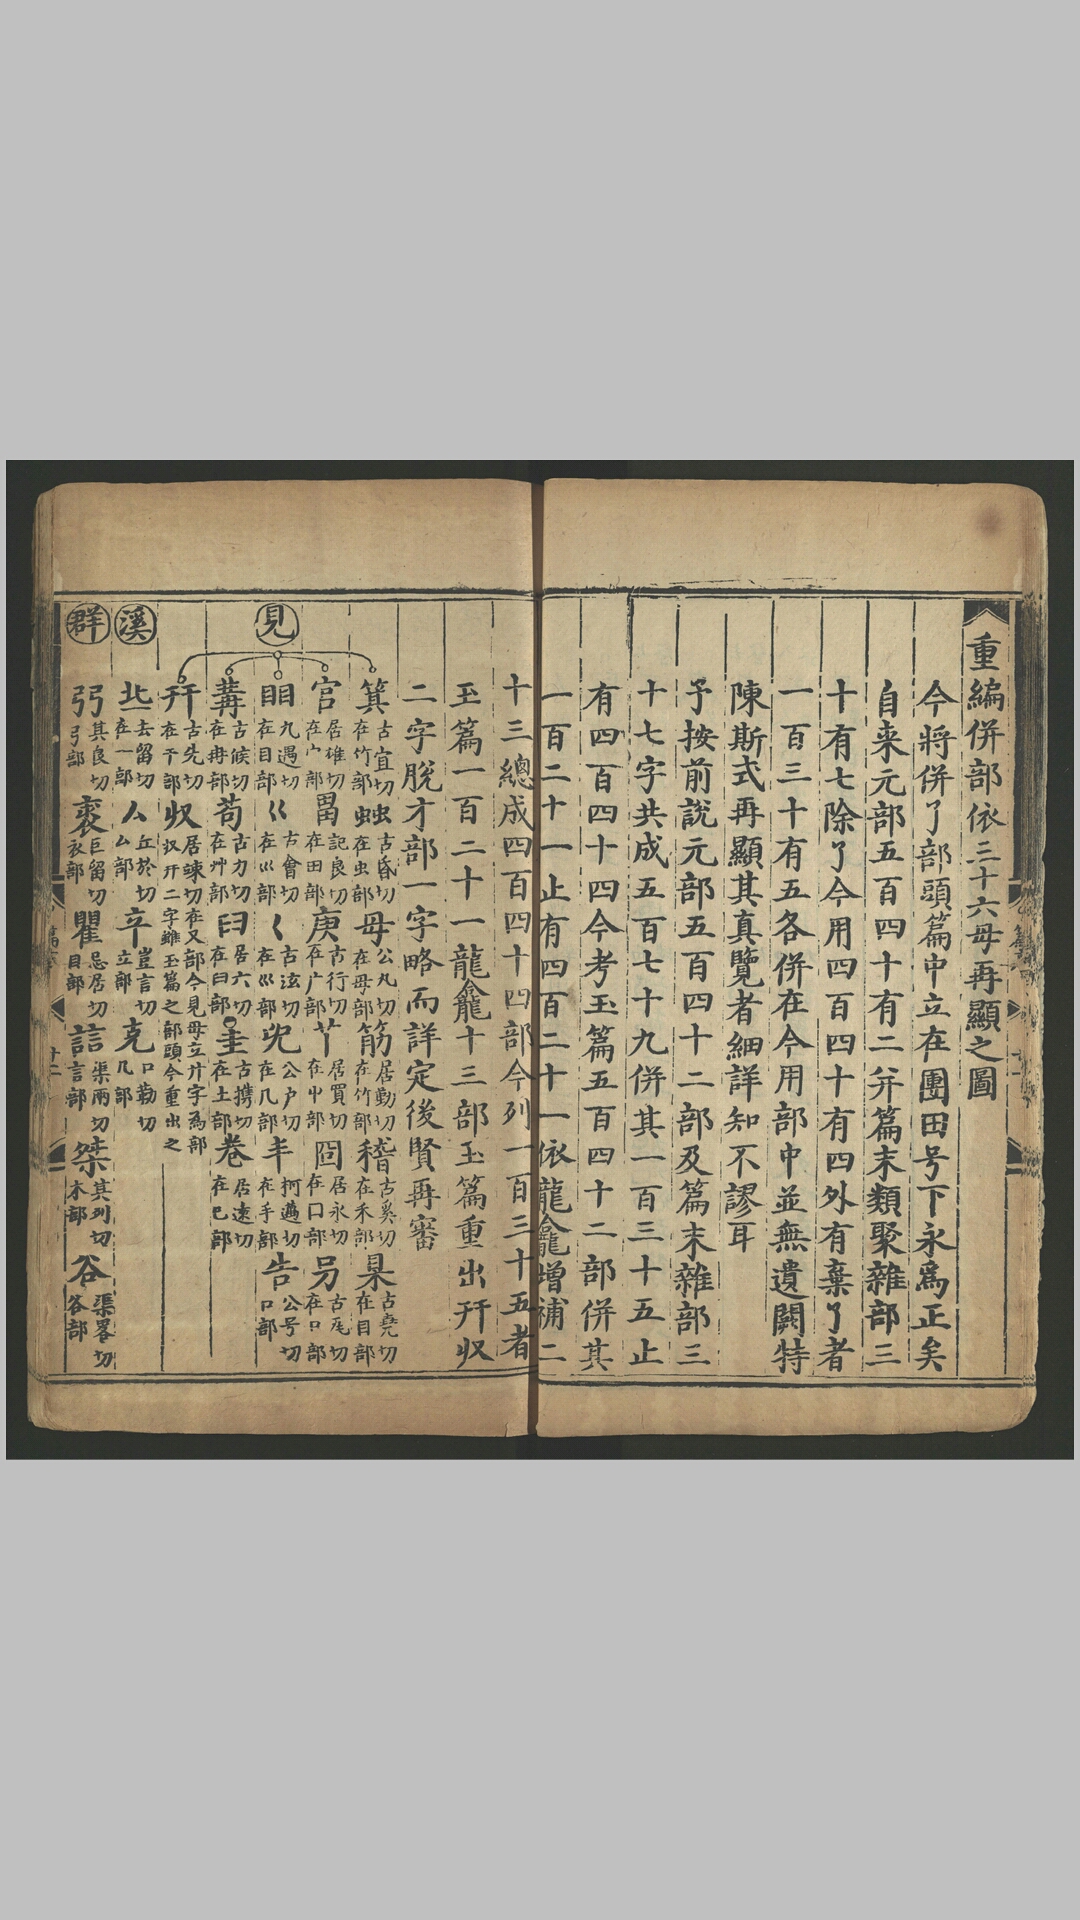 重編併部依三十六母再顯之圖
今將併了部頭篇中立在團田号下永爲正矣
自来元部五百四十有二并篇末類聚雜部三
十有七除了今用四百四十有四外有棄了者
一百三十有五各併在今用部中並無遺闕特
陳斯式再顯其真覽者細詳知不謬耳
予按前說元部五百四十二部及篇末雜部三
十七字共成五百七十九併其一百三十五止
有四百四十四今考玉篇五百四十二部併其
一百二十一止有四百二十一依龍龕增補二
十三總成四百四十四部今列一百三十五者
玉篇一百二十一龍龕十三部玉篇重出幵収
二字脫才部一字略而詳定後賢再審
見
箕古宜切在竹部 䖵古昏切在虫部 毋公丸切在毋部 筋居勤切在竹部 稽古奚切在禾部 杲古堯切在目部
宫居雄切在宀部 畕記良切在田部 庚古行切在广部 丫居買切在中部 囧居永切在口部 另古瓦切在口部
䀠九遇切在目部 巜古會切在巛部 𡿨古泫切在巛部 𠑹公户切在几部 丯柯邁切在手部 告公号切口部
冓古候切在冉部 苟古力切在艸部 𦥑居六切在曰部 圭古攜切在土部 卷居遠切在巳部
幵古先切在干部 収居竦切在又部今見母立廾字為部収幵二字雖玉篇之部頭今重出之
溪
北去留切在一部 厶丘於切厶部 䇂豈言切立部 克口勒切几部
群
弜其良切弓部 裘巨留切衣部 瞿忌居切目部 誩渠兩切言部 桀其列切木部 谷渠畧切谷部